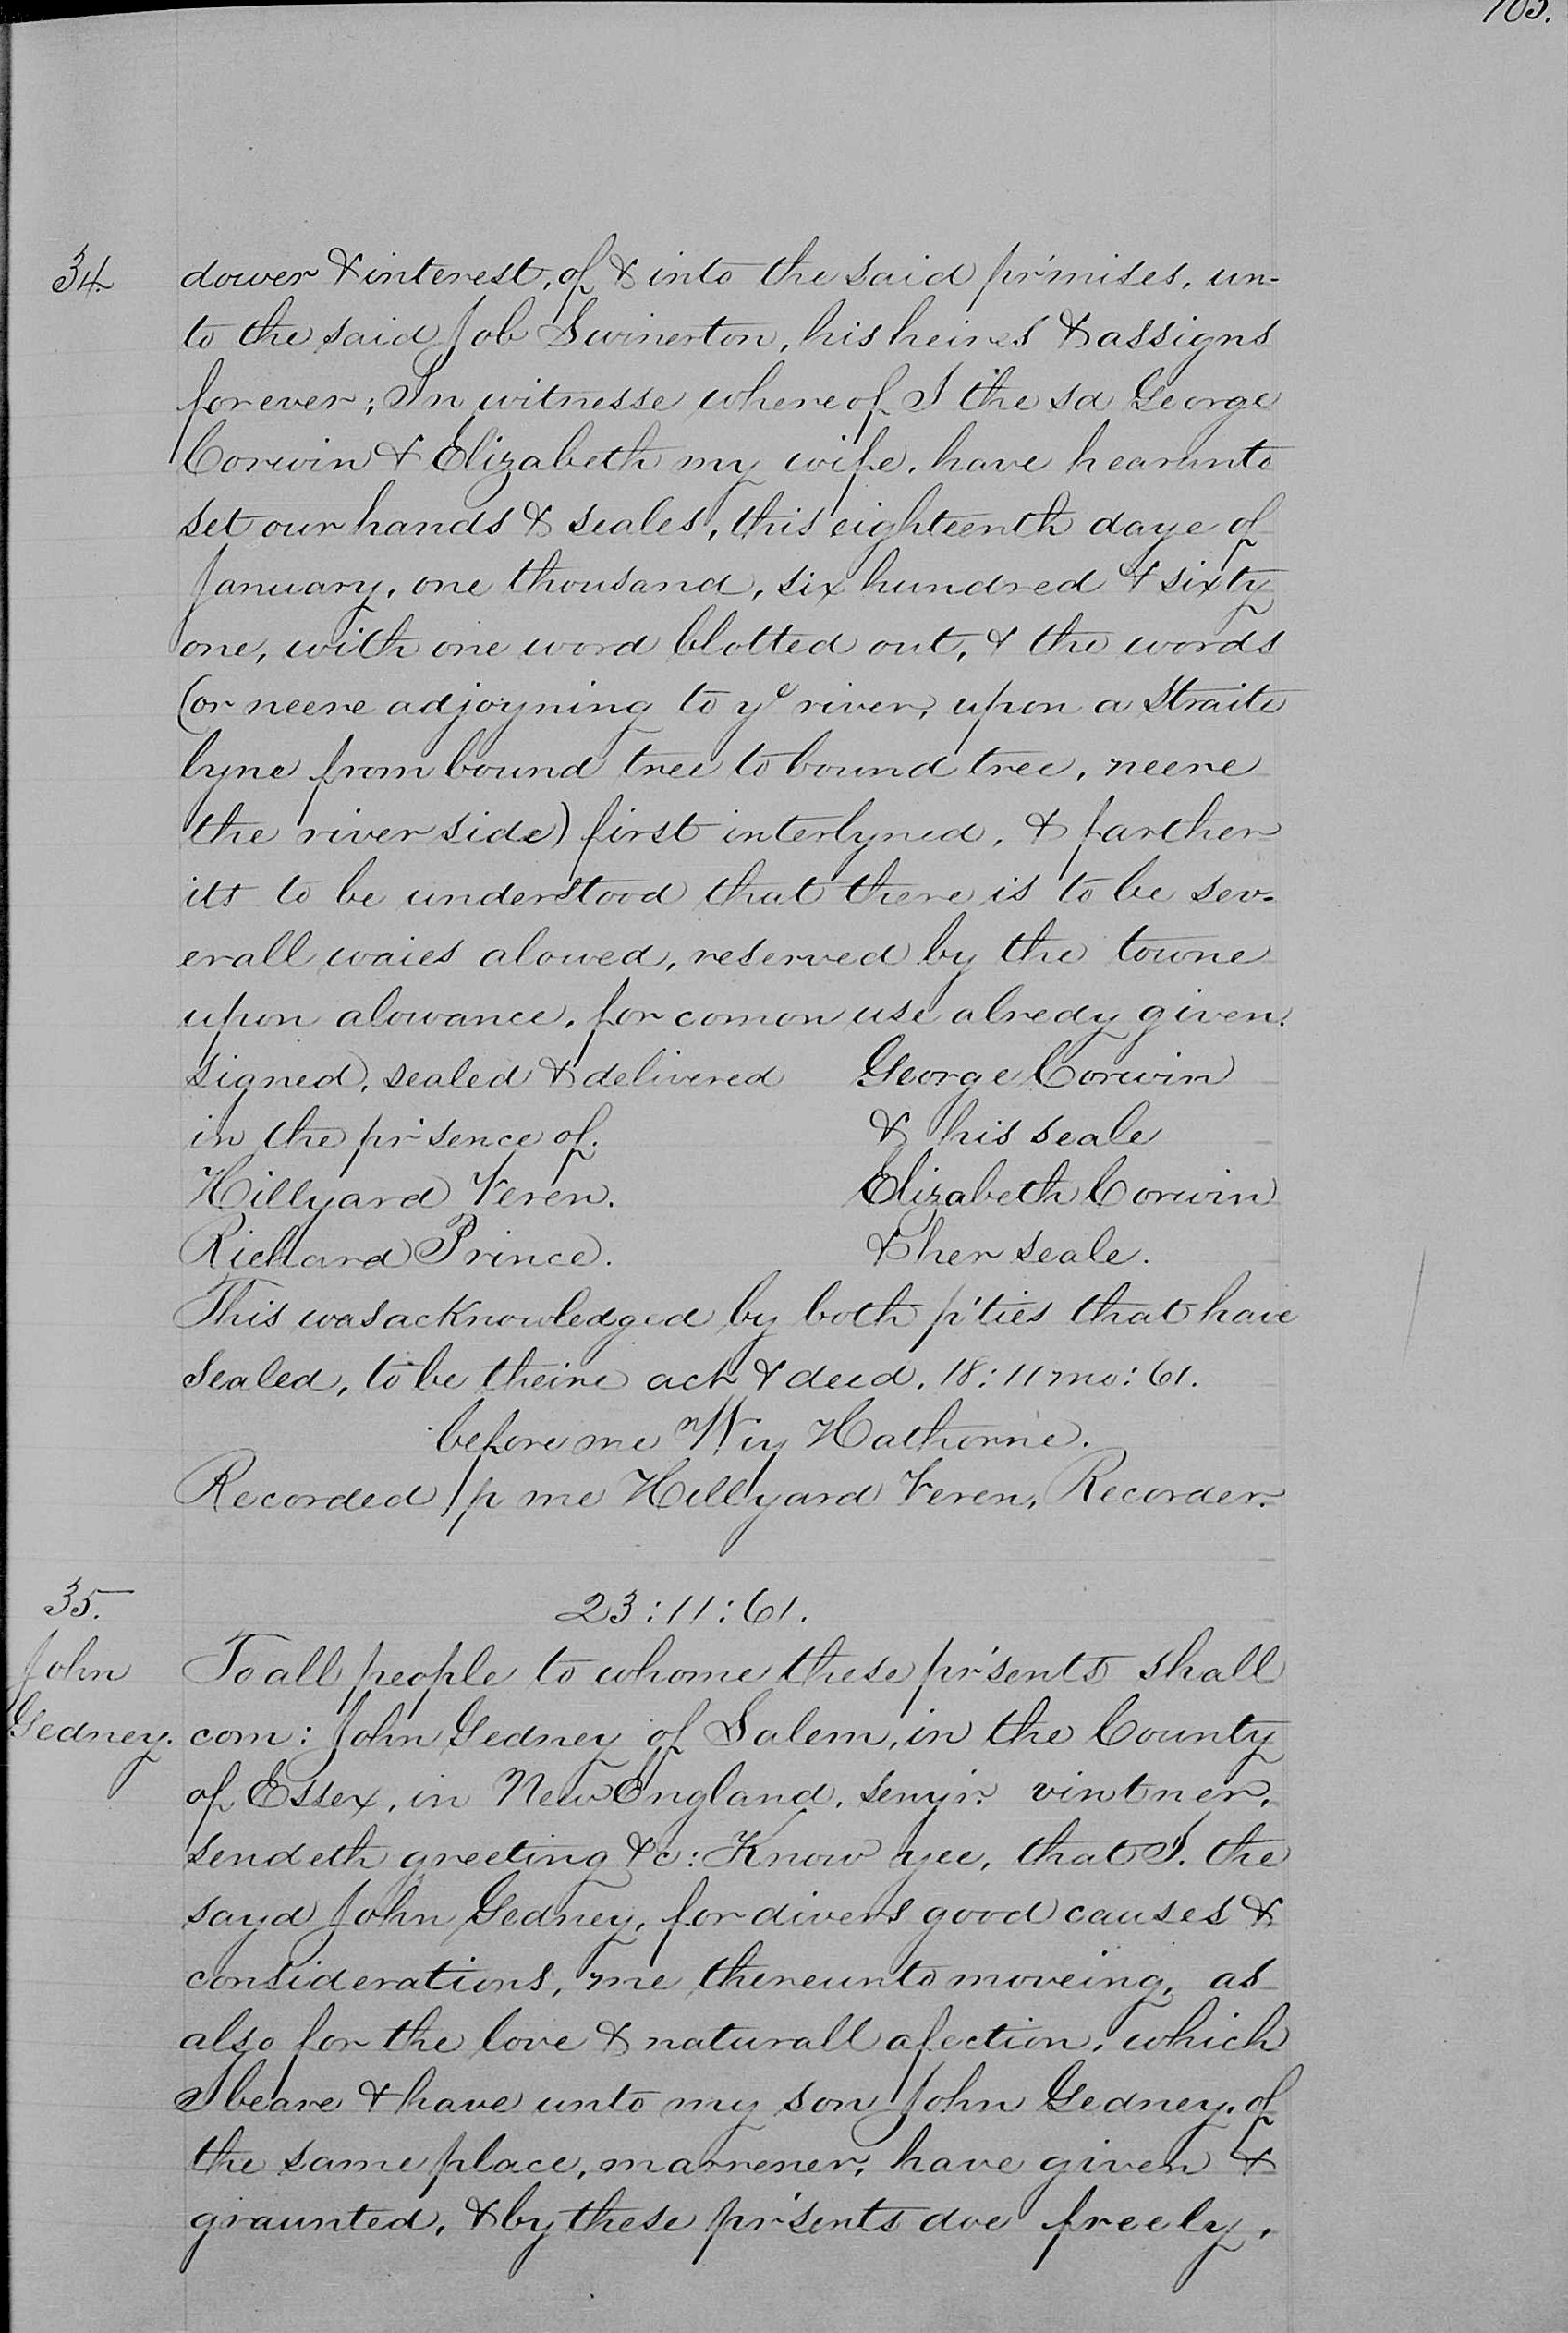 34. dower & interest, of & into the said pr'mises, un-
to the said Job Swinerton, his heires & assigns
forever; In witnesse whereof I the sd George
Corwin & Elizabeth my wife, have hearunto
set our hands & seales, this eighteenth daye of
January, one thousand, six hundred & sixty
one, with one word blotted out, & the words
(or neere adjoyning to yᵉ river, upon a straite
lyne from bound tree to bound tree, neere
the river side) first interlyned, & farther
its to be understood that there is to be sev-
erall waies alowed, reserved by the towne
upon alowance, for comon use alredy given.
signed, sealed & delivered George Corwin
in the pr'sence of. & his seale
Hillyard Veren. Elizabeth Corwin
Richard Prince. & her seale.
This was acknowledged by both p'ties that have
sealed, to be theire act & deed. 18:11 mo: 61.
before me Wm Hathorne.
Recorded p me Hillyard Veren, Recorder.
35. 23:11:61.
John To all people to whome these pr'sents shall
Gedney. com: John Gedney of Salem, in the County
of Essex, in New England, senyr. vintner,
sendeth greeting &c: Know yee, that I. the
sayd John Gedney, for divers good causes &
considerations, me thereunto moveing, as
also for the love & naturall afection, which
I beare & have unto my son John Gedney, of
the same place, marrener, have given &
graunted, & by these pr'sents doe freely,